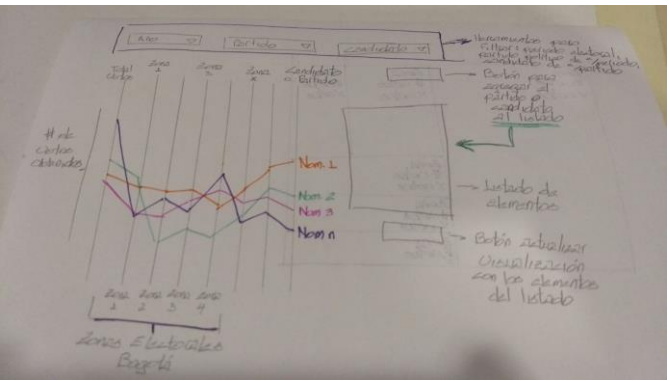 Año Partido Candidato
Herramientas para
filtrar periodo electoral,
partido político de
candidato de
Total Votos Zona 1 Zona 2 Zona Candidato
Partidos
Botón para
agregar el
partido o
candidato
al listado
# de
Votos
obtenidos
Nom 1
Nom 2
Nom 3
Nom n
Listado de
elementos
Botón actualizar
Visualización
con los elementos
del listado
Zona 1 Zona 2 Zona 3 Zona 4
Zonas Electorales
Bogotá